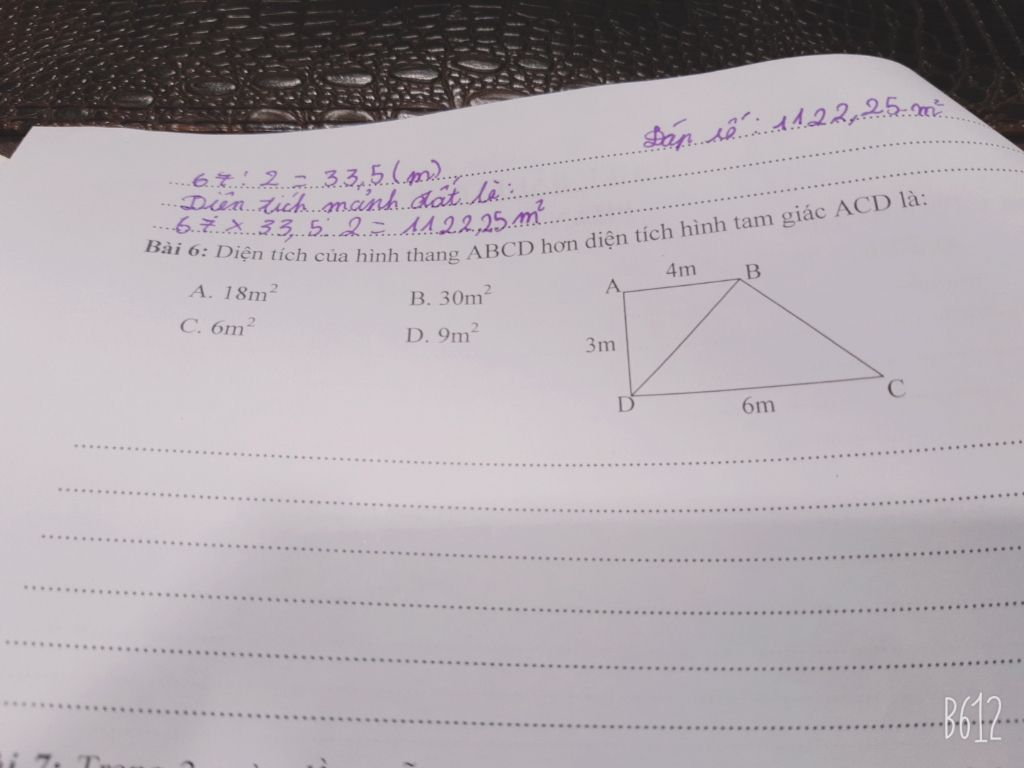 67 : 2 = 33,5 (m)
Đáp số : 1122,25 m²
Diện tích mảnh đất là:
67 x 33,5 : 2 = 1122,25 m²
Bài 6: Diện tích của hình thang ABCD hơn diện tích hình tam giác ACD là:
A. 18m²
B. 30m²
C. 6m²
D. 9m²
A
4m
B
3m
D
6m
C
B612